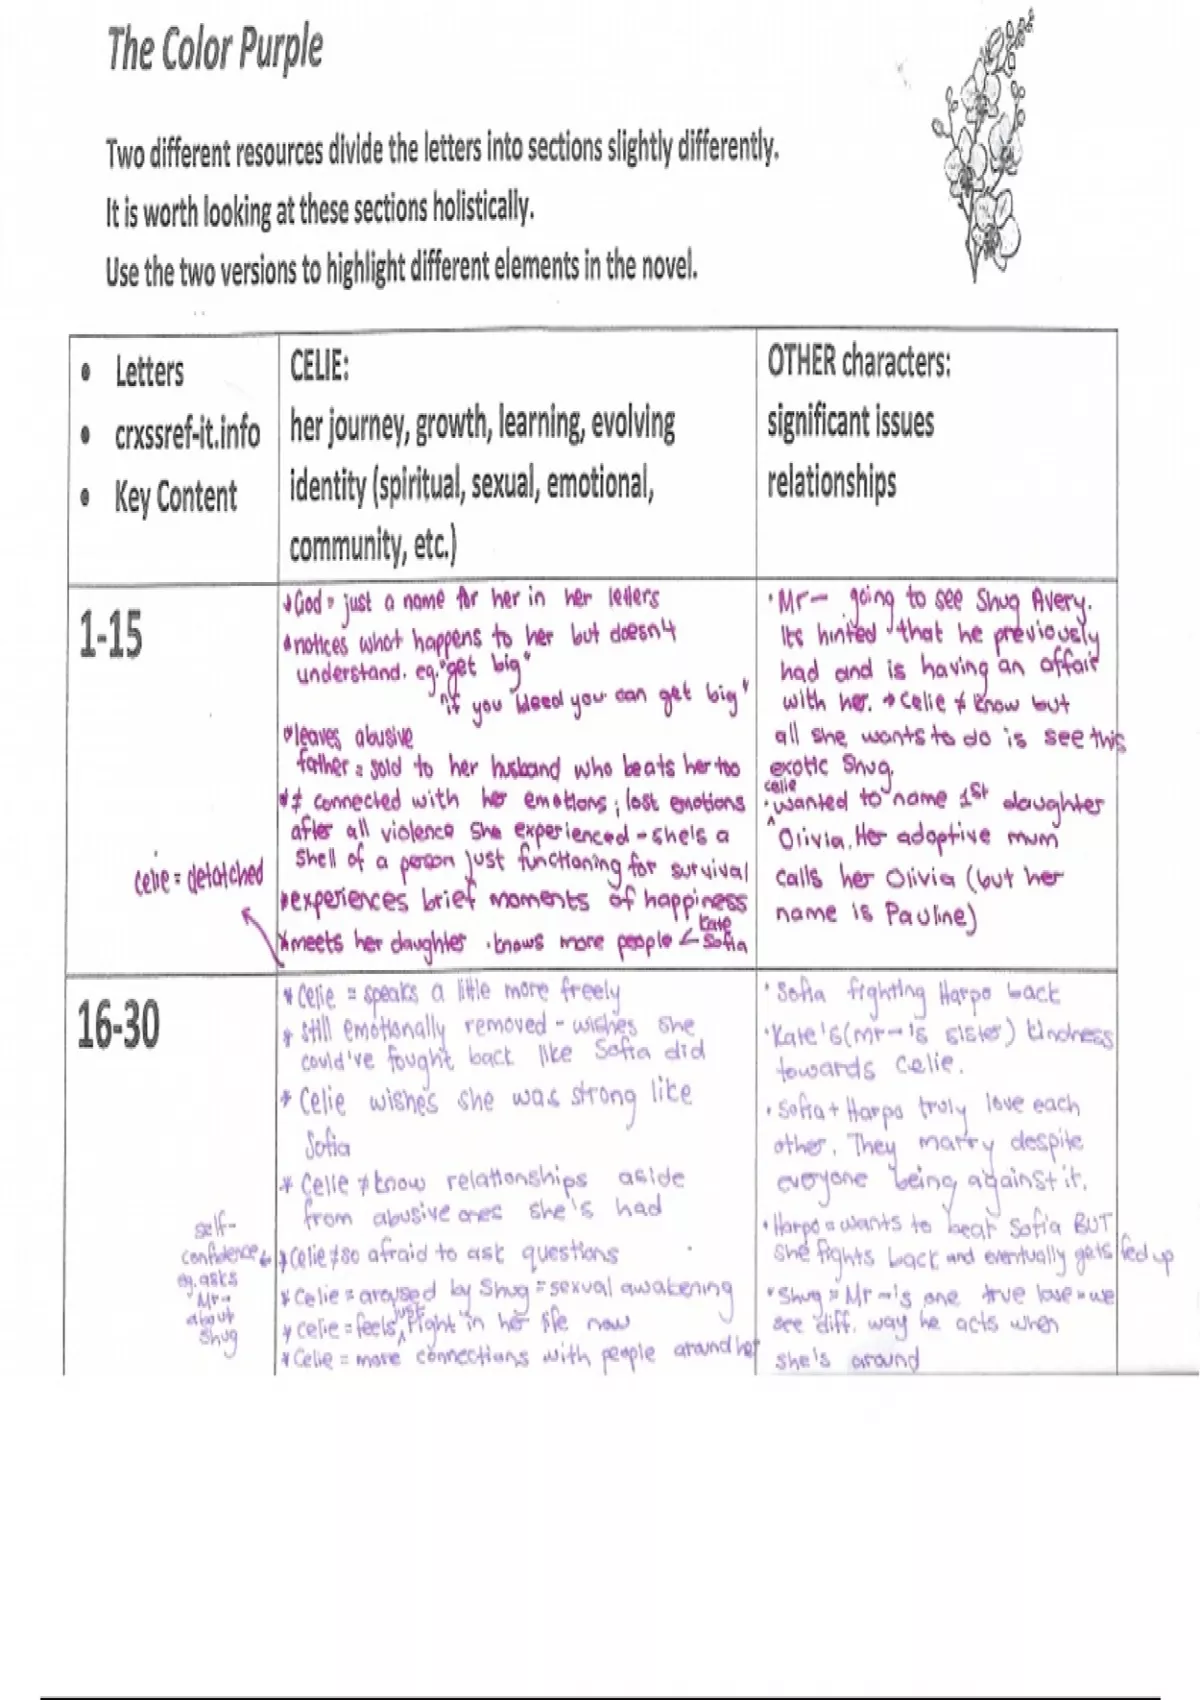 The Color Purple
Two different resources divide the letters into sections slightly differently.
It is worth looking at these sections holistically.
Use the two versions to highlight different elements in the novel.
• Letters
• crxssref-it.info
• Key Content
CELIE:
her journey, growth, learning, evolving
identity (spiritual, sexual, emotional,
community, etc.)
OTHER characters:
significant issues
relationships
1-15
celie = detatched
* God = just a name for her in her letters
* notices what happens to her but doesn't
understand. eg. "get big"
"if you bleed you can get big"
* leaves abusive
father = sold to her husband who beats her too
* ≠ connected with her emotions; lost emotions
after all violence she experienced - she's a
shell of a person just functioning for survival
* experiences brief moments of happiness
* meets her daughter • knows more people < Kate
Sofia
• Mr— going to see Shug Avery.
Its hinted that he previously
had and is having an affair
with her. → Celie ≠ know but
all she wants to do is see this
exotic Shug.
• celie wanted to name 1st daughter
Olivia. Her adoptive mum
calls her Olivia (but her
name is Pauline)
16-30
self-
confidence
eg. asks
Mr—
about
Shug
* Celie = speaks a little more freely
* still emotionally removed - wishes she
could've fought back like Sofia did
* Celie wishes she was strong like
Sofia
* Celie ≠ know relationships aside
from abusive ones she's had
* Celie ≠ so afraid to ask questions
* Celie = aroused by Shug = sexual awakening
* Celie = feels just "right" in her life now
* Celie = more connections with people around her
• Sofia fighting Harpo back
• Kate's (mr—'s sister) kindness
towards celie.
• Sofia + Harpo truly love each
other. They marry despite
everyone being against it.
• Harpo = wants to beat Sofia BUT
she fights back and eventually gets fed up
• Shug = Mr—'s one true love = we
see diff. way he acts when
she's around